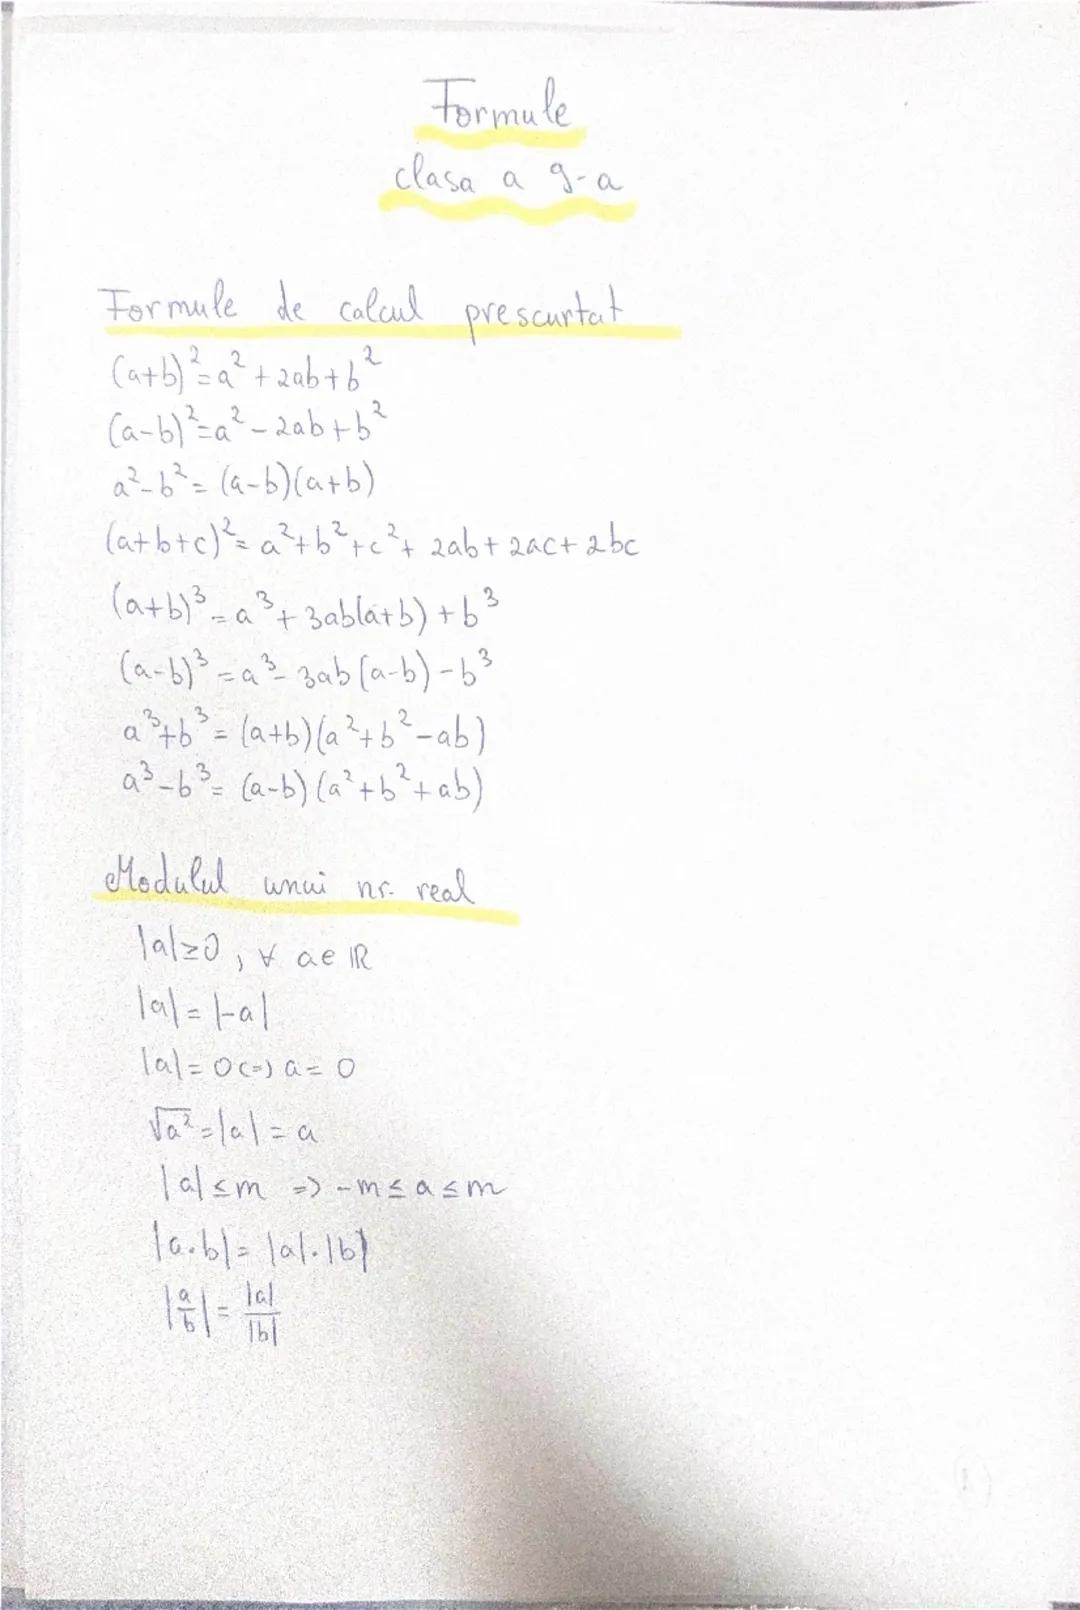 Formule
clasa a 9-a
Formule de calcul prescurtat
(a+b)²=a²+2ab+b²
(a-b)²=a²-2ab+b²
a²-b²=(a-b)(a+b)
(a+b+c)²=a²+b²+c²+2ab+2ac+2bc
(a+b)³=a³+3ab(a+b)+b³
(a-b)³=a³-3ab(a-b)-b³
a³+b³=(a+b)(a²+b²-ab)
a³-b³=(a-b)(a²+b²+ab)
Modulul unui nr. real
|a|≥0, ∀ a∈ℝ
|a|=|-a|
|a|=0<=>a=0
√a²=|a|=a
|a|≤m => -m≤a≤m
|a·b|=|a|·|b|
|a/b|=|a|/|b|